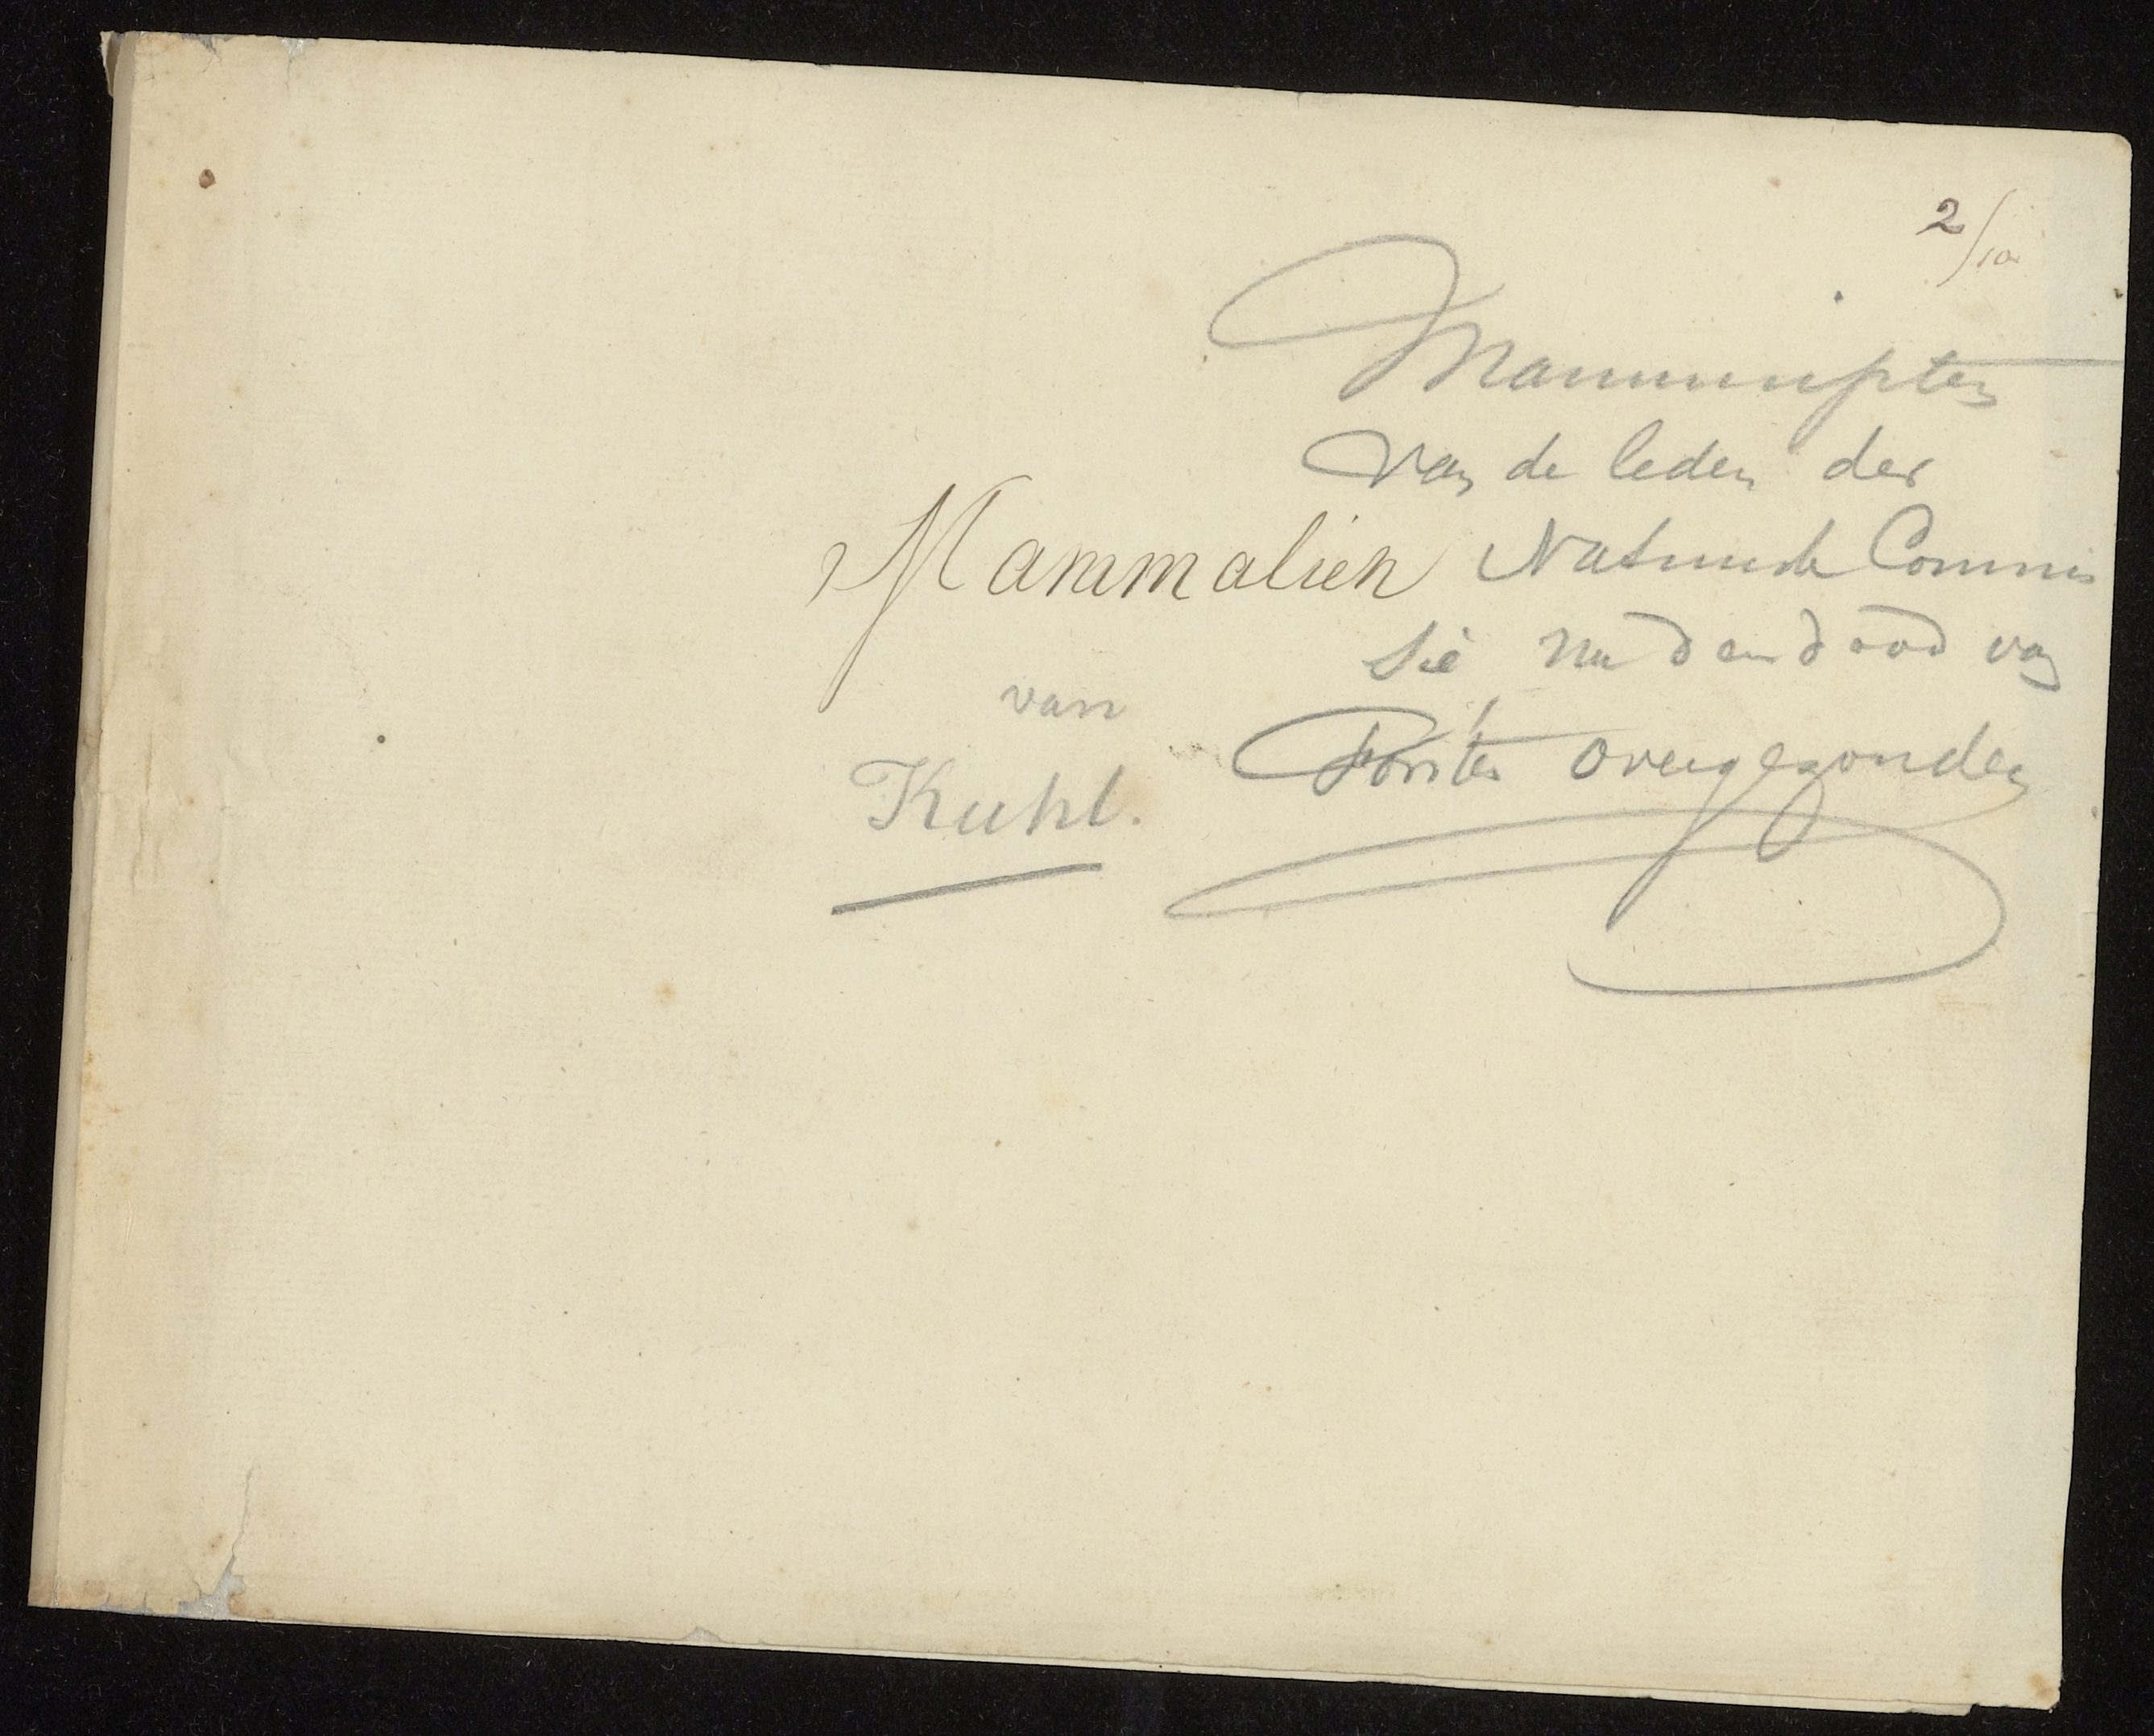 2/10
Manuscripten
van de leden der
Natuurk Commis
sie na den dood van
Forsten overgezonden
Mammalien
van
Kuhl.